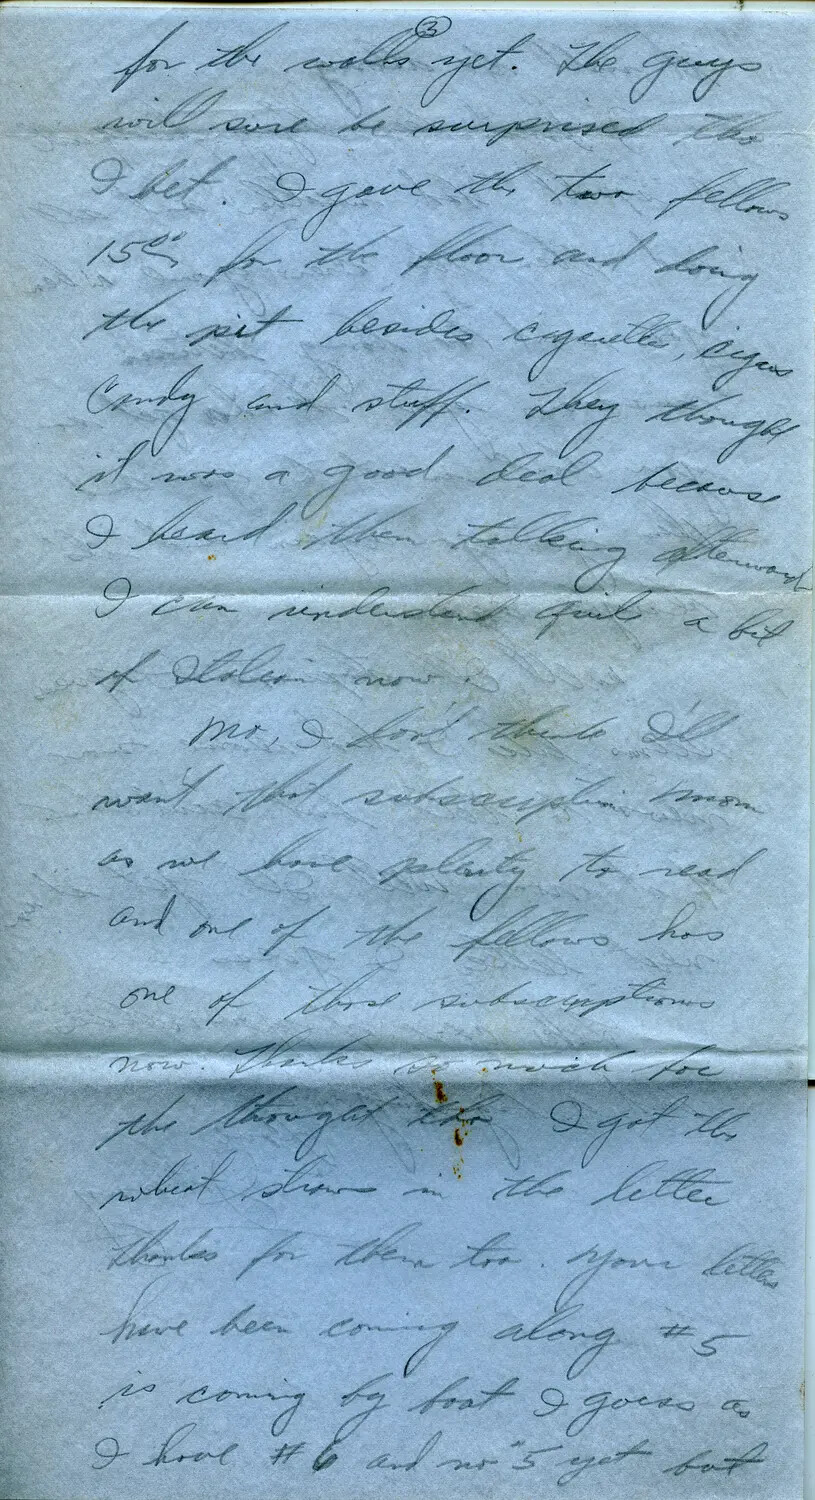 ③
for the walls yet. The guys
will sure be surprised tho
I bet. I gave the two fellows
15 for the floor and doing
the pit besides cigarettes, cigars
Candy and stuff. They thought
it was a good deal because
I heard them talking afterward
I can understand quite a bit
of Italian now.
No, I don't think I'll
want that subscription Mom
as we have plenty to read
and one of the fellows has
one of those subscriptions
now. Thanks so much for
the thought tho I got the
wheat straws in the letter
thanks for them too. Your letters
have been coming along #5
is coming by boat I guess as
I have #6 and no #5 yet but